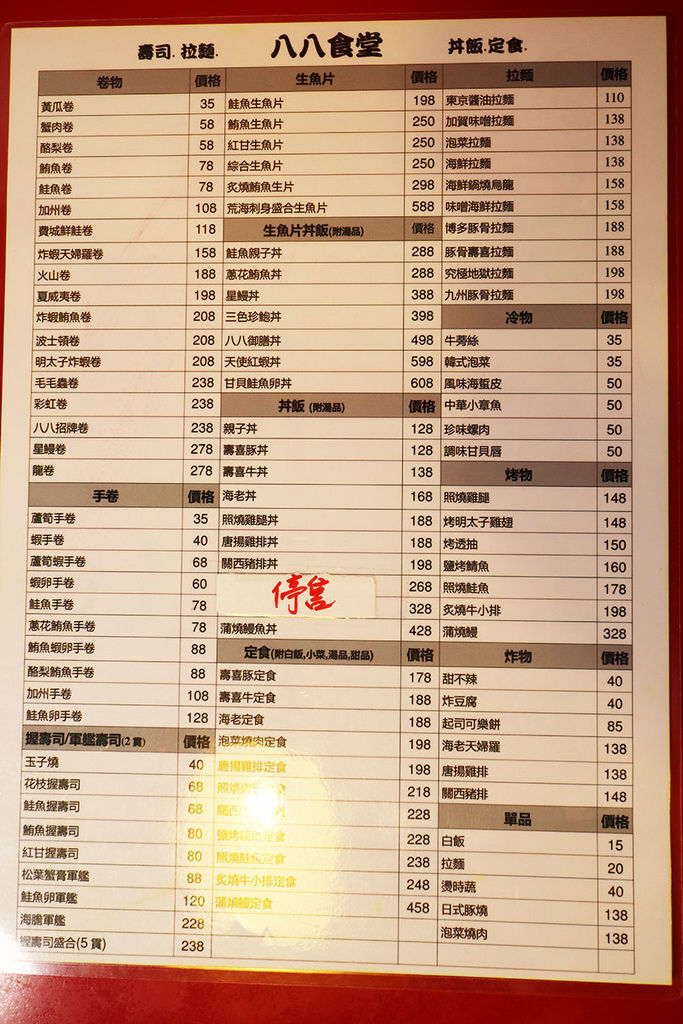 壽司.拉麵.
八八食堂
丼飯.定食.
卷物 價格
黃瓜卷 35
蟹肉卷 58
酪梨卷 58
鮪魚卷 78
鮭魚卷 78
加州卷 108
費城鮮鮭卷 118
炸蝦天婦羅卷 158
火山卷 188
夏威夷卷 198
炸蝦鮪魚卷 208
波士頓卷 208
明太子炸蝦卷 208
毛毛蟲卷 238
彩虹卷 238
八八招牌卷 238
星鰻卷 278
龍卷 278
手卷 價格
蘆筍手卷 35
蝦手卷 40
蘆筍蝦手卷 68
蝦卵手卷 60
鮭魚手卷 78
蔥花鮪魚手卷 78
鮪魚蝦卵手卷 88
酪梨鮪魚手卷 88
加州手卷 108
鮭魚卵手卷 128
握壽司/軍艦壽司(2貫) 價格
玉子燒 40
花枝握壽司 68
鮭魚握壽司 68
鮪魚握壽司 80
紅甘握壽司 80
松葉蟹膏軍艦 88
鮭魚卵軍艦 120
海膽軍艦 228
握壽司盛合(5貫) 238
生魚片 價格
鮭魚生魚片 198
鮪魚生魚片 250
紅甘生魚片 250
綜合生魚片 250
炙燒鮪魚生片 298
荒海刺身盛合生魚片 588
生魚片丼飯(附湯品) 價格
鮭魚親子丼 288
蔥花鮪魚丼 288
星鰻丼 388
三色珍鮑丼 398
八八御膳丼 498
天使紅蝦丼 598
甘貝鮭魚卵丼 608
丼飯 (附湯品) 價格
親子丼 128
壽喜豚丼 128
壽喜牛丼 138
海老丼 168
照燒雞腿丼 188
唐揚雞排丼 188
關西豬排丼 198
停售 268
328
蒲燒鰻魚丼 428
定食(附白飯,小菜,湯品,甜品) 價格
壽喜豚定食 178
壽喜牛定食 188
海老定食 188
泡菜燒肉定食 198
唐揚雞排定食 198
照燒定食 218
關西 228
鹽烤定食 228
照燒鮭魚定食 238
炙燒牛小排定食 248
蒲燒鰻定食 458
拉麵 價格
東京醬油拉麵 110
加賀味噌拉麵 138
泡菜拉麵 138
海鮮拉麵 138
海鮮鍋燒烏龍 158
味噌海鮮拉麵 158
博多豚骨拉麵 188
豚骨壽喜拉麵 188
究極地獄拉麵 198
九州豚骨拉麵 198
冷物 價格
牛蒡絲 35
韓式泡菜 35
風味海蜇皮 50
中華小章魚 50
珍味螺肉 50
調味甘貝唇 50
烤物 價格
照燒雞腿 148
烤明太子雞翅 148
烤透抽 150
鹽烤鯖魚 160
照燒鮭魚 178
炙燒牛小排 198
蒲燒鰻 328
炸物 價格
甜不辣 40
炸豆腐 40
起司可樂餅 85
海老天婦羅 138
唐揚雞排 138
關西豬排 148
單品 價格
白飯 15
拉麵 20
燙時蔬 40
日式豚燒 138
泡菜燒肉 138